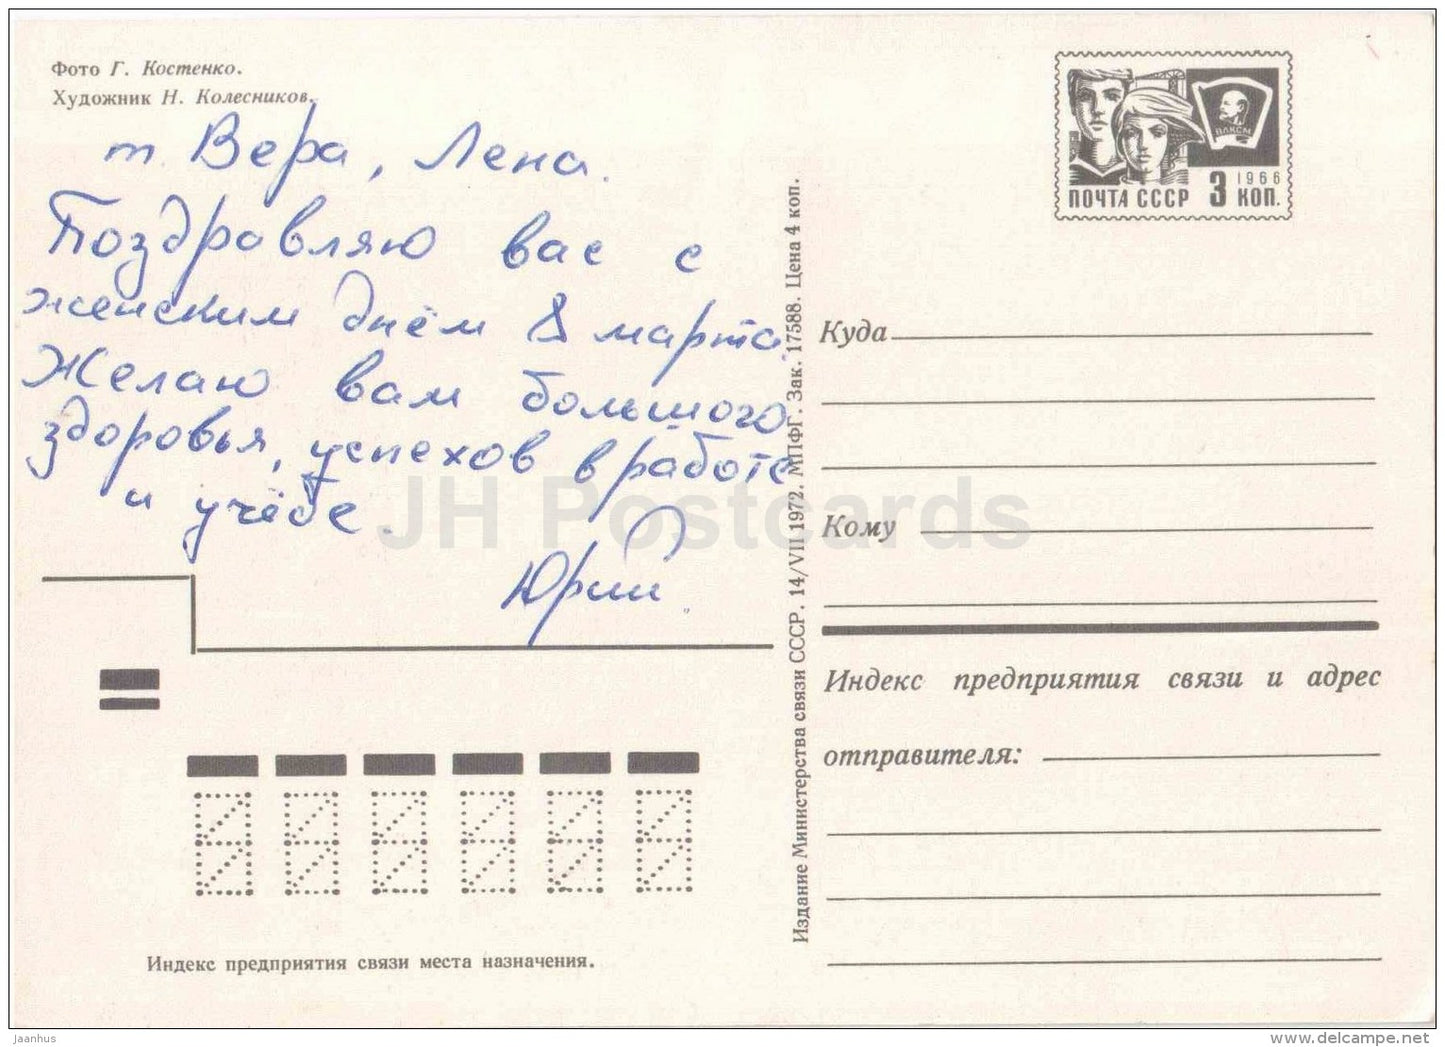 Фото Г. Костенко.
Художник Н. Колесников.
т. Вера, Лена.
Поздравляю вас с
женским днём 8 марта.
Желаю вам большого
здоровья, успехов в работе
и учёбе.
Юрий.
Индекс предприятия связи места назначения.
Издание Министерства связи СССР. 14/VII 1972. МПФГ. Зак. 17588. Цена 4 коп.
ВЛКСМ
1966
ПОЧТА СССР 3 КОП.
Куда
Кому
Индекс предприятия связи и адрес
отправителя:
JH Postcards
jaanhus
delcampe.net